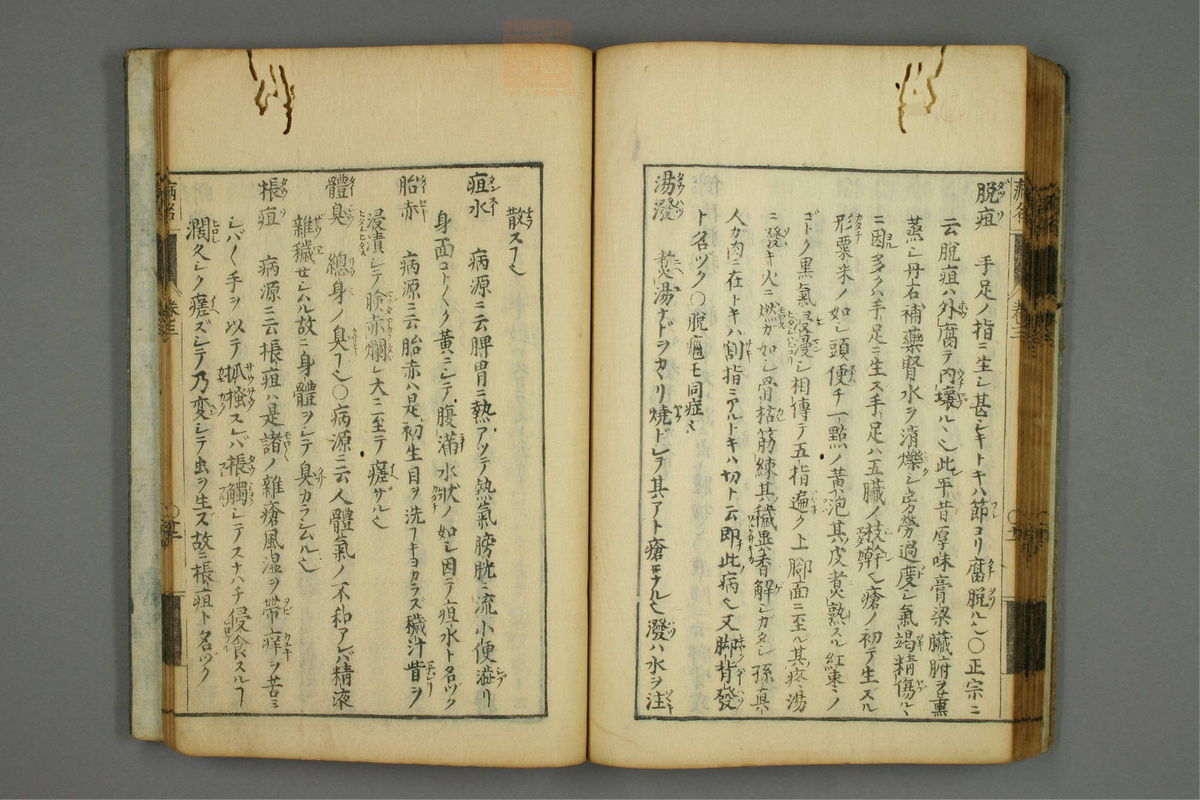 脱疽 手足ノ指ニ生シ甚シキトキハ節ヨリ腐脱ルヽ〇正宗ニ
云脱疽ハ外腐テ内壊ルヽ此平昔厚味膏梁臓腑ヲ薫
蒸シ丹石補藥腎水ヲ消爍シ房勞過度シ氣竭精傷ルヽ
ニ因多クハ手足ニ生ス手足ハ五臓ノ枝幹ヽ瘡ノ初テ生ズル
形粟米ノ如シ頭便チ一點ノ黄泡其皮煮熟スル紅棗ノ
ゴトク黒氣浸漫シ相傳テ五指遍ク上脚面ニ至ル其疼湯
ニ潑キ火ニ燃ガ如シ骨枯筋練其穢異香解シガタシ孫真
人カ肉ニ在トキハ割指ニアルトキハ切ト云即此病ヽ又脚背發
ト名ツク〇脱癰モ同症ヽ
湯潑 煑湯ナドヲカヽリ焼ドシテ其アト瘡モナルヽ潑ハ水ヲ注
散スヿヽ
疽水 病源ニ云脾胃ニ熱アツテ熱氣膀胱ニ流小便溢リ
身面コトく黄ニシテ腹滿水狀ノ如シ因テ疸水ト名ヅク
胎赤 病源ニ云胎赤ハ是初生目ヲ洗フヿヨカラズ穢汁眥ヲ
浸漬シテ瞼赤爛シ大ニ至テ瘥ザルヽ
體臭 總身ノ臭ヿヽ〇病源ニ云人體氣ノ不和アレバ精液
雜穢セシムル故ニ身體ヲシテ臭カラシムルヽ
棖疽 病源ニ云棖疽ハ是諸ノ雜瘡風湿ヲ帶ヒ痒ヲ苦ミ
シバく手ヲ以テ抓搔スレバ棖觸シテスナハチ侵食スルヿ
濶久シク瘥ズシテ乃変シテ虫ヲ生ズ故ニ棖疽ト名ヅク
病名 卷三
病名 卷三